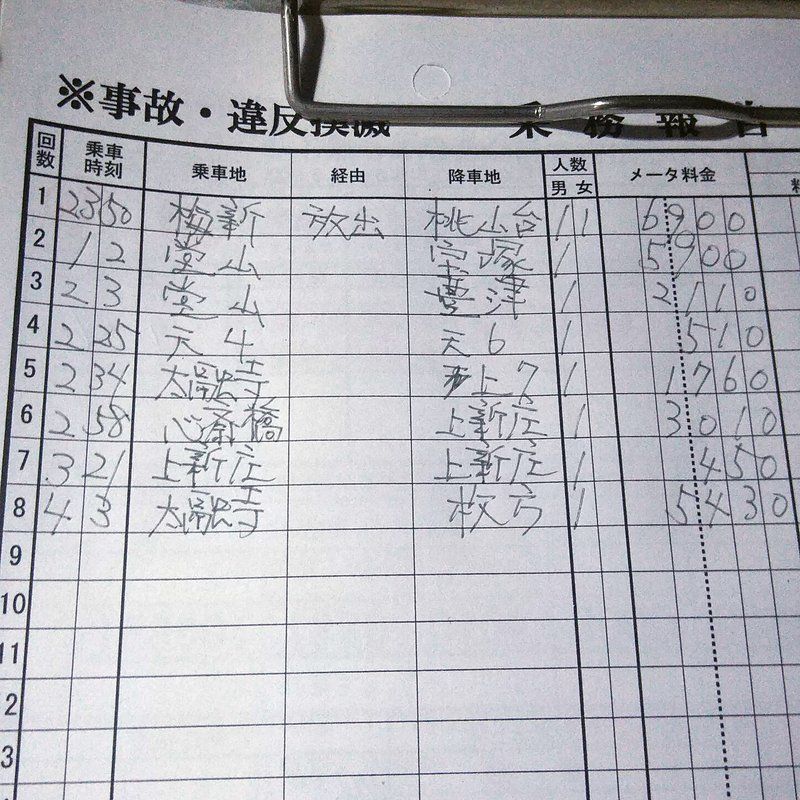 ※事故・違反撲滅 乗務報告
回数 乗車時刻 乗車地 経由 降車地 人数 男 女 メータ料金
1 23 50 梅新 放出 桃山台 1 1 6900
2 1 2 堂山 宝塚 1 5900
3 2 3 堂山 豊津 1 2110
4 2 25 天4 天6 1 510
5 2 34 太融寺 上7 1 1760
6 2 58 心斎橋 上新庄 1 3010
7 3 21 上新庄 上新庄 1 450
8 4 3 太融寺 枚方 1 5430
9
10
11
2
3